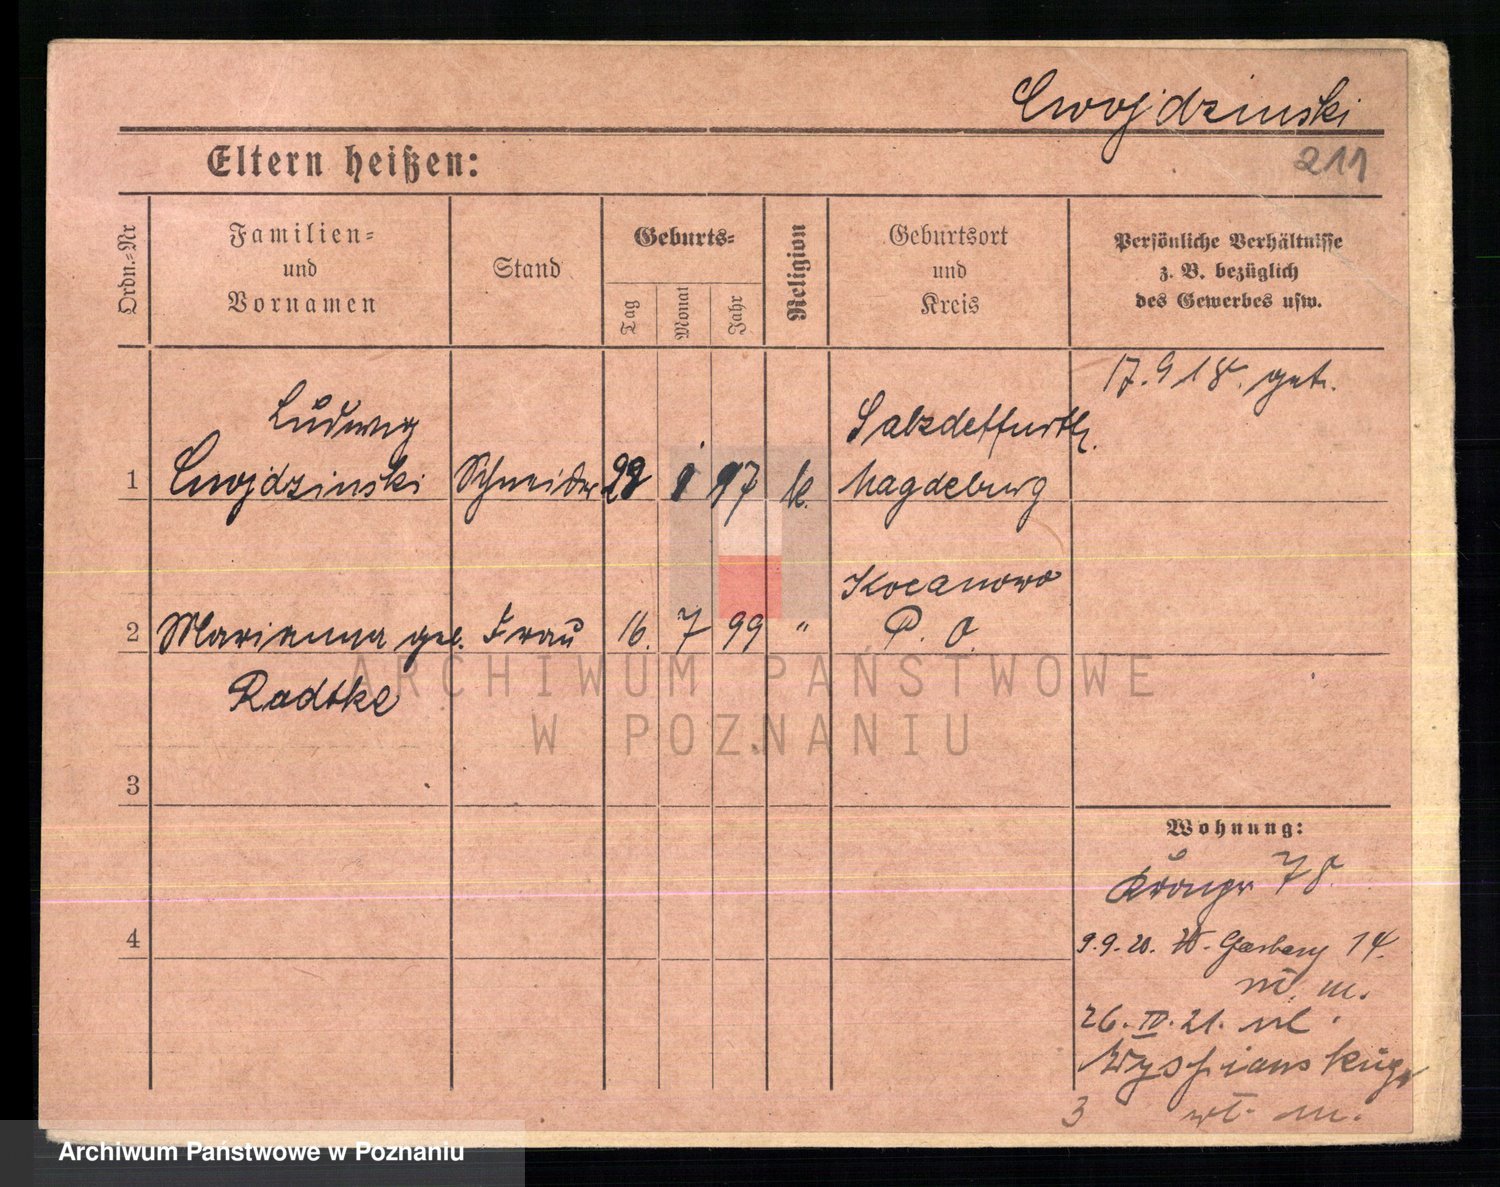 Cwojdzinski
Eltern heißen:
211
Ordn.-Nr
Familien-
und
Vornamen
Stand
Geburts-
Tag
Monat
Jahr
Religion
Geburtsort
und
Kreis
Persönliche Verhältnisse
z. B. bezüglich
des Gewerbes usw.
17. 9 18. getr.
Ludwig
Salzdetfurth
1 Cwojdzinski Schneider 97 k. Magdeburg
Kocanowo
2 Marianna geb. Frau 16. 7 99 " P. O.
Radtke
ARCHIWUM PAŃSTWOWE
W POZNANIU
3
Wohnung:
78
4
9.9.20. Garbary 14.
m.
26. IV. 21. ul.
Wyspianskiego
3 m.
Archiwum Państwowe w Poznaniu